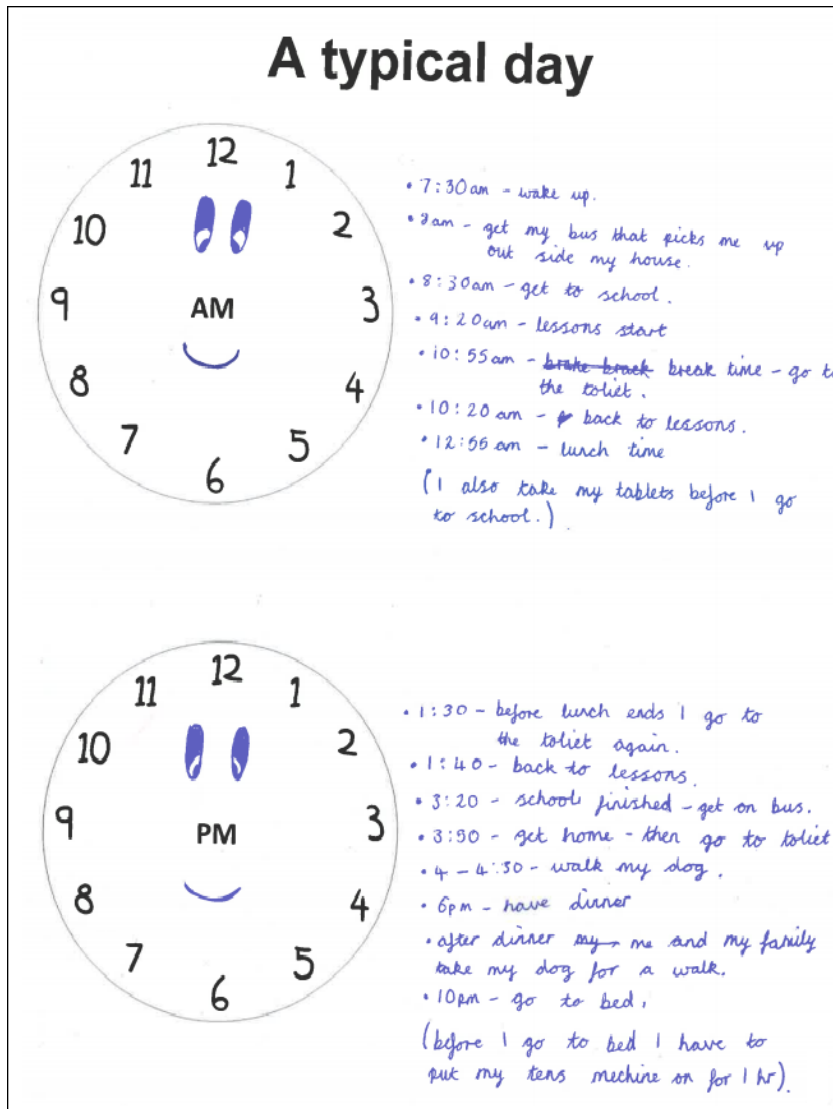 A typical day
12
11
1
10
2
9
AM
3
8
4
7
5
6
• 7:30am - wake up.
• 8am - get my bus that picks me up
out side my house.
• 8:30am - get to school.
• 9:20am - lessons start
• 10:55am - brake brack break time - go to
the toliet.
• 10:20 am - back to lessons.
• 12:55 am - lunch time
(I also take my tablets before I go
to school.)
12
11
1
10
2
9
PM
3
8
4
7
5
6
• 1:30 - before lunch ends I go to
the toliet again.
• 1:40 - back to lessons.
• 3:20 - school finished - get on bus.
• 3:50 - get home - then go to toliet
• 4 - 4:30 - walk my dog.
• 6pm - have dinner
• after dinner my me and my family
take my dog for a walk.
• 10pm - go to bed.
(before I go to bed I have to
put my tens mechine on for 1 hr).